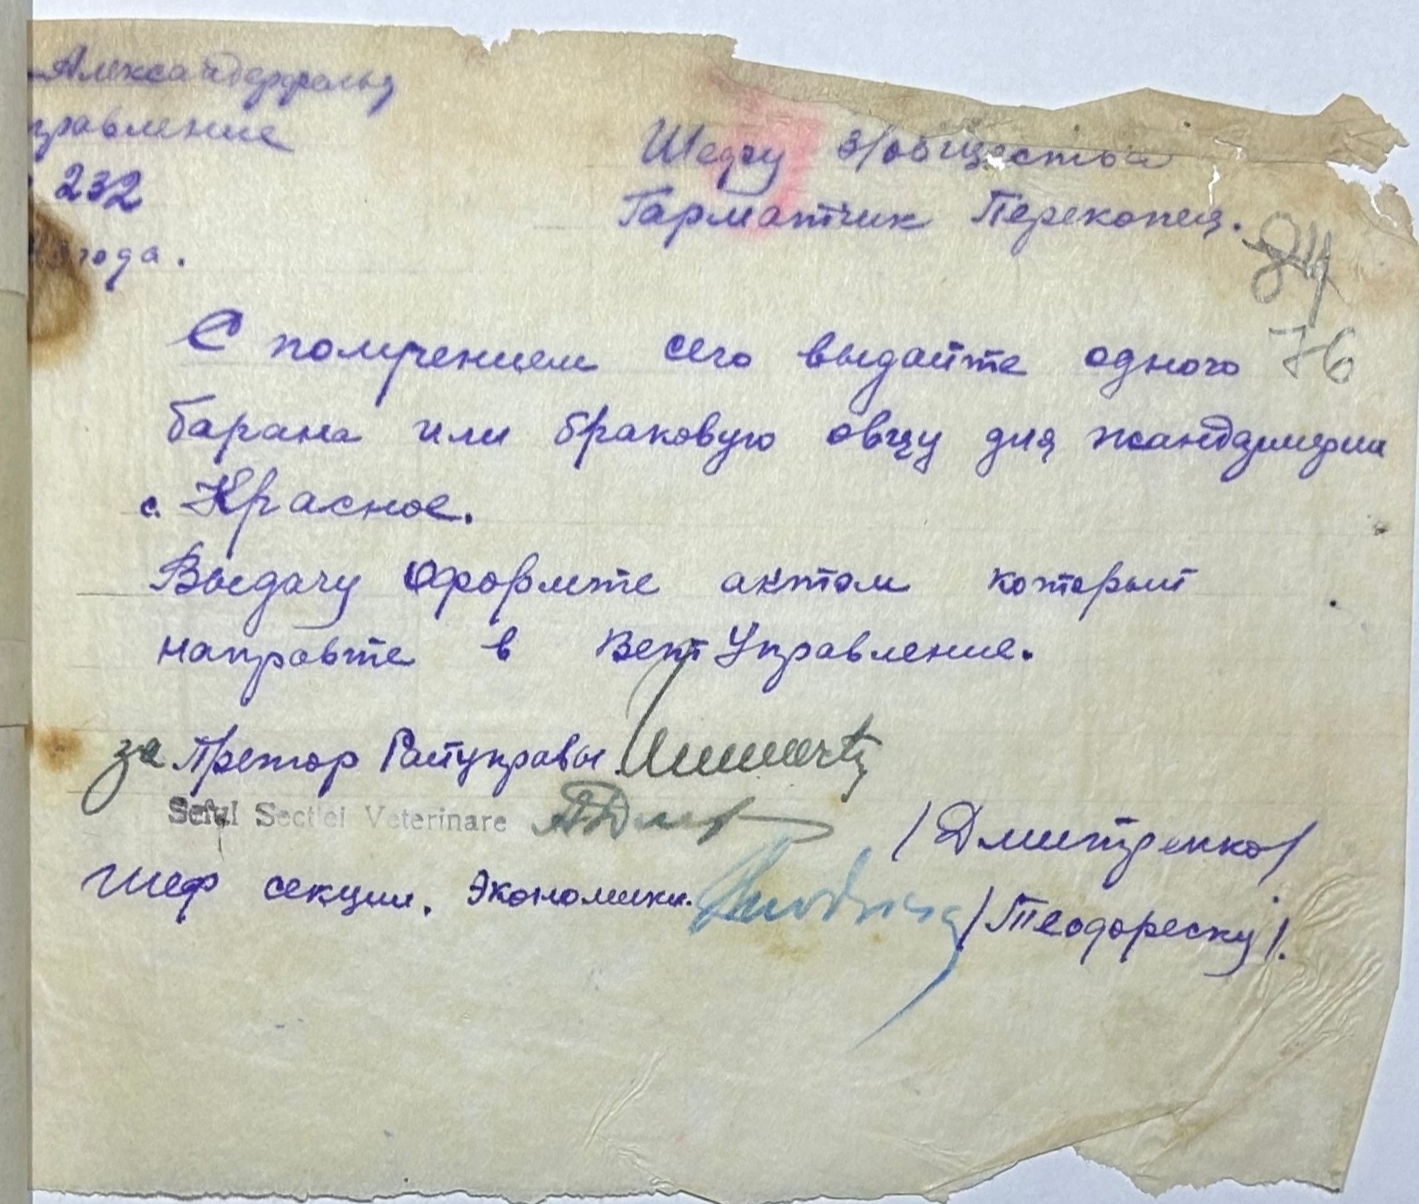 Александерфельд
правление
232
года.
Шефу з/общества
Гарматчик Перекопец.
84
76
С получением сего выдайте одного
барана или браковую овцу для жандармерии
с. Красное.
Выдачу оформте актом которыт
направте в Вет Управление.
за Претор Райуправы
Seful Sectiei Veterinare
/Дмитренко/
Шеф секции. Экономики.
/Теодореску/.